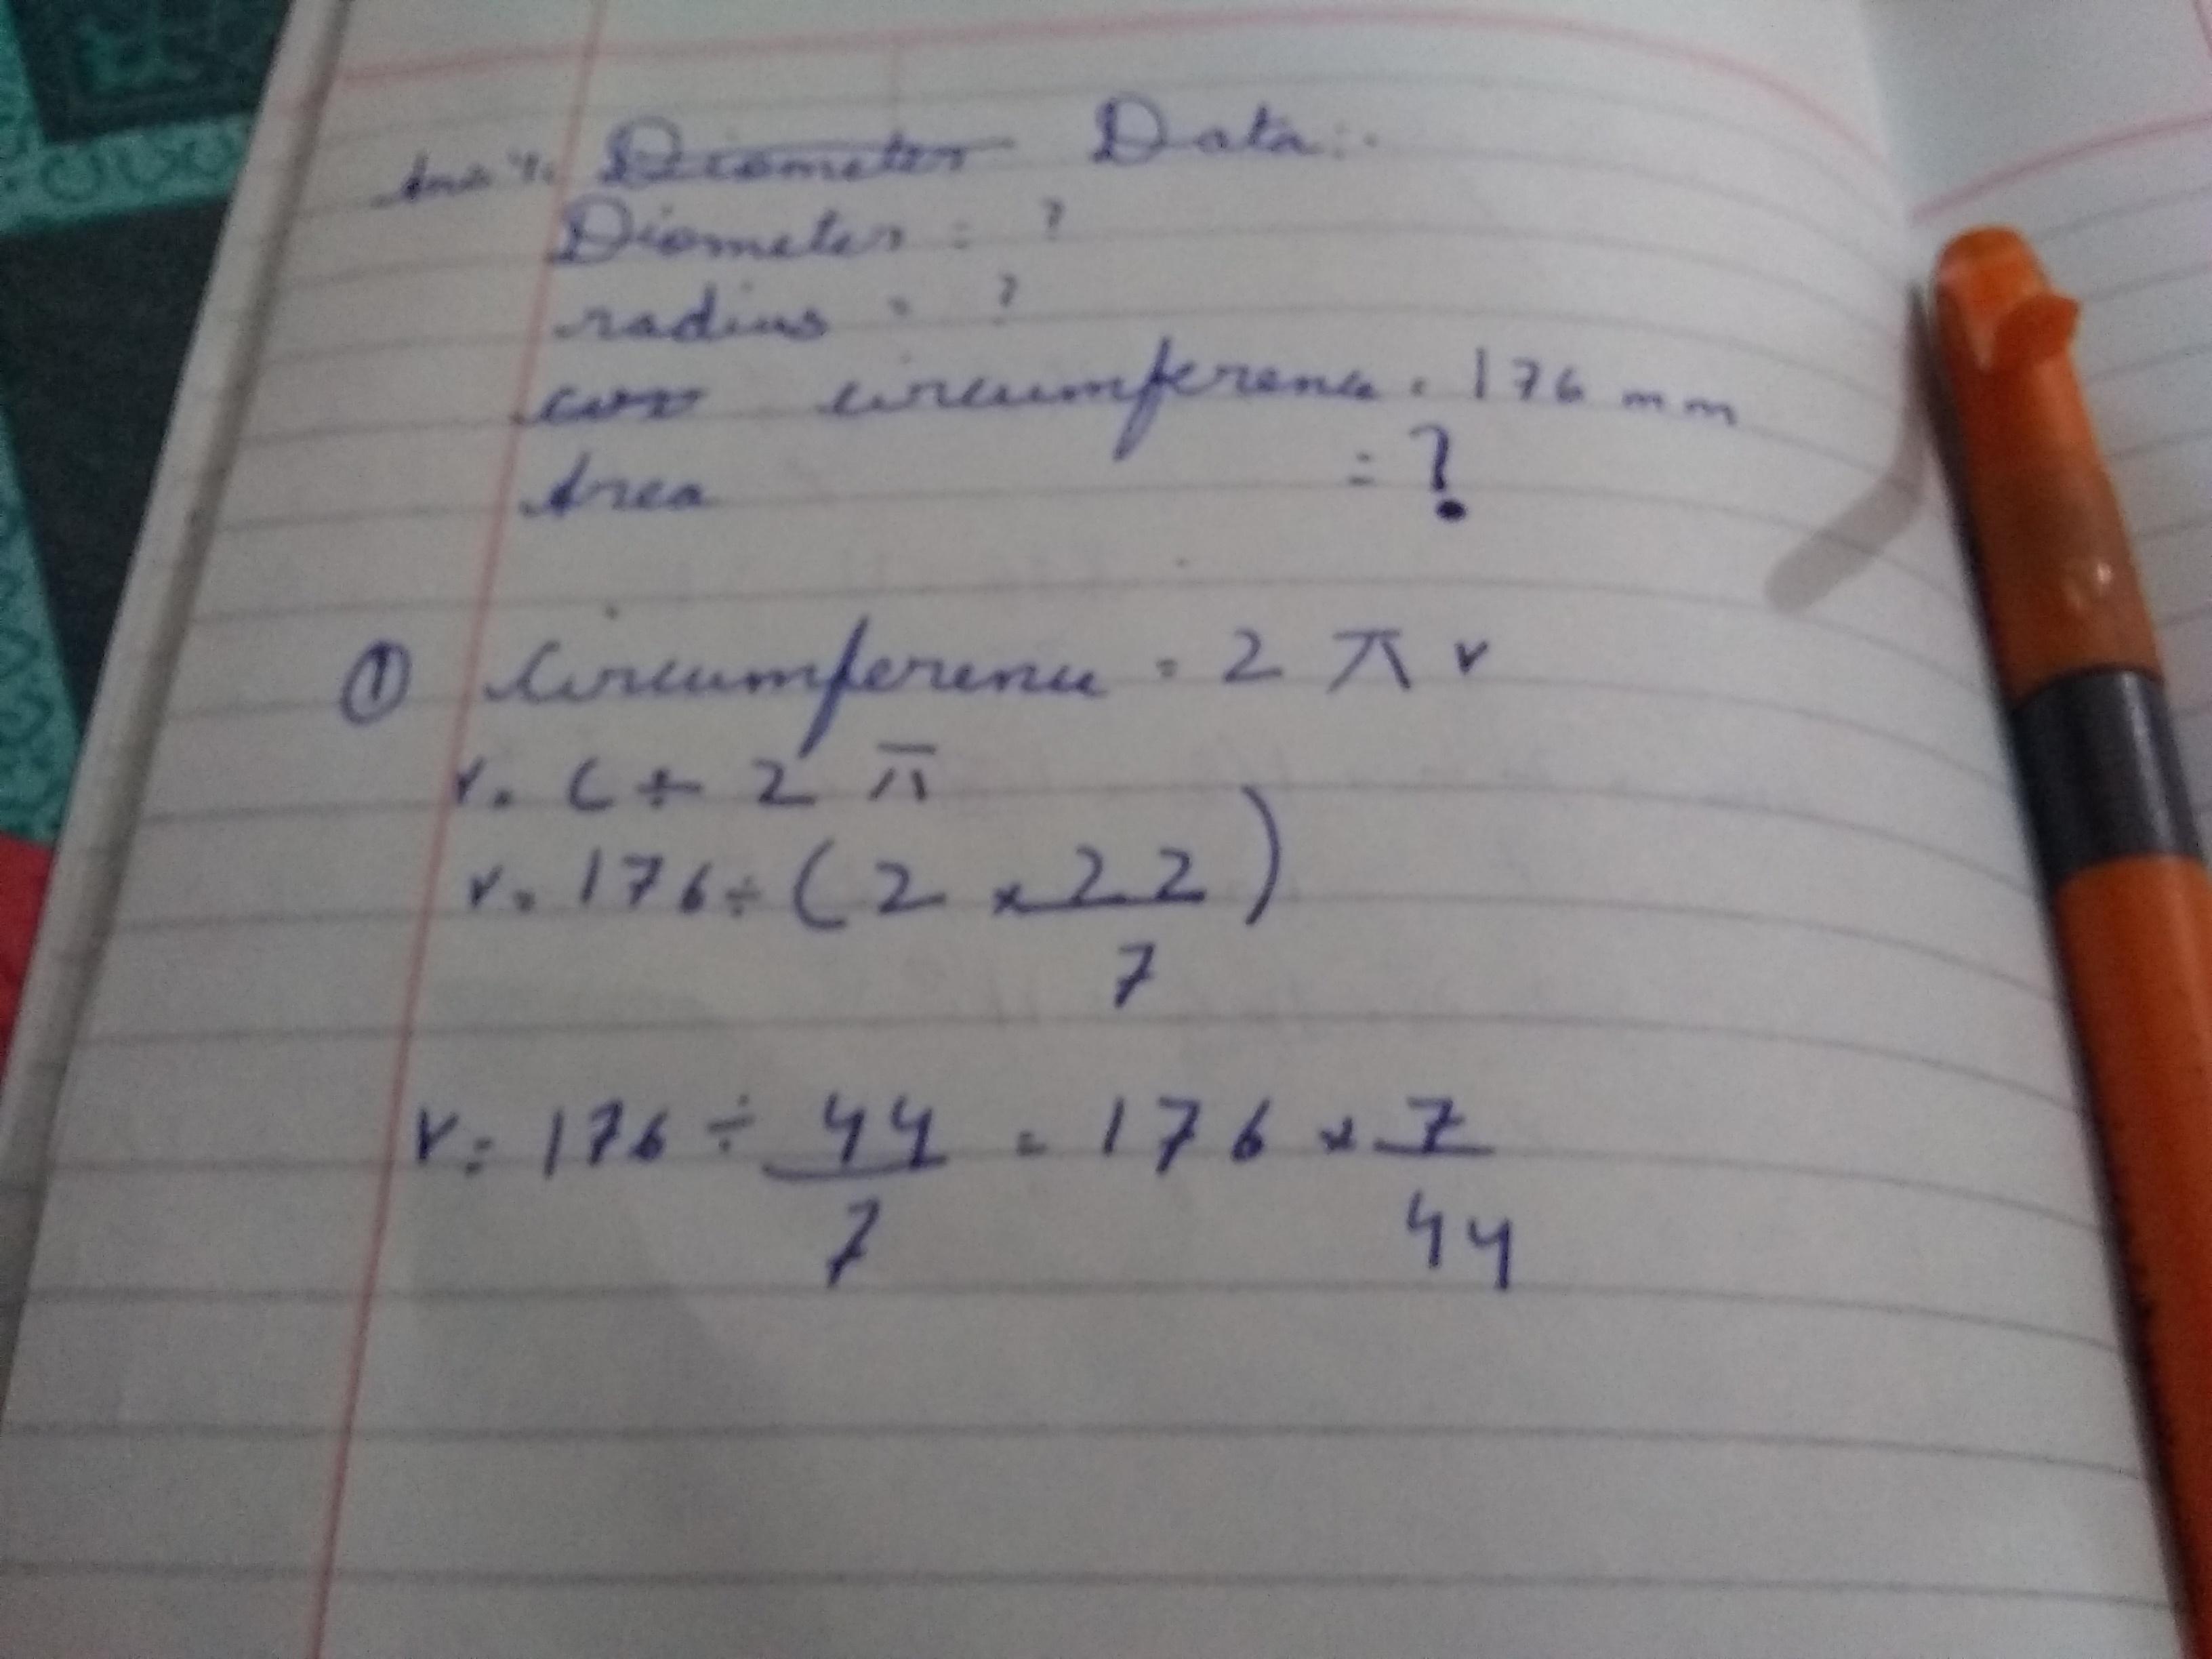 Ans 4. Diameter Data :-
Diameter = ?
radius = ?
cor circumference = 176 mm
Area = ?
① Circumference = 2 π r
r = C ÷ 2 π
r = 176 ÷ ( 2 × 22/7 )
r = 176 ÷ 44/7 = 176 × 7/44